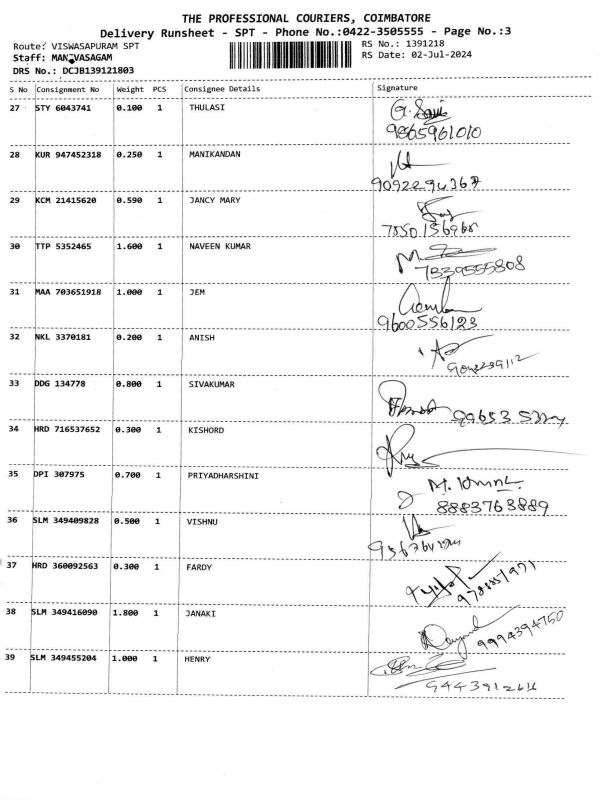 THE PROFESSIONAL COURIERS, COIMBATORE
Delivery Runsheet - SPT - Phone No.:0422-3505555 - Page No.:3
Route: VISWASAPURAM SPT
RS No.: 1391218
Staff: MANIVASAGAM
RS Date: 02-Jul-2024
DRS No.: DCJB139121803
S No Consignment No Weight PCS Consignee Details Signature
27 STY 6043741 0.100 1 THULASI
9865961010
28 KUR 947452318 0.250 1 MANIKANDAN
9092294367
29 KCM 21415620 0.590 1 JANCY MARY
30 TTP 5352465 1.600 1 NAVEEN KUMAR
7339555808
31 MAA 703651918 1.000 1 JEM
9600556123
32 NKL 3370181 0.200 1 ANISH
33 DDG 134778 0.800 1 SIVAKUMAR
34 HRD 716537652 0.300 1 KISHORD
35 DPI 307975 0.700 1 PRIYADHARSHINI
8883763889
36 SLM 349409828 0.500 1 VISHNU
37 HRD 360092563 0.300 1 FARDY
38 SLM 349416090 1.800 1 JANAKI
9994394750
39 SLM 349455204 1.000 1 HENRY